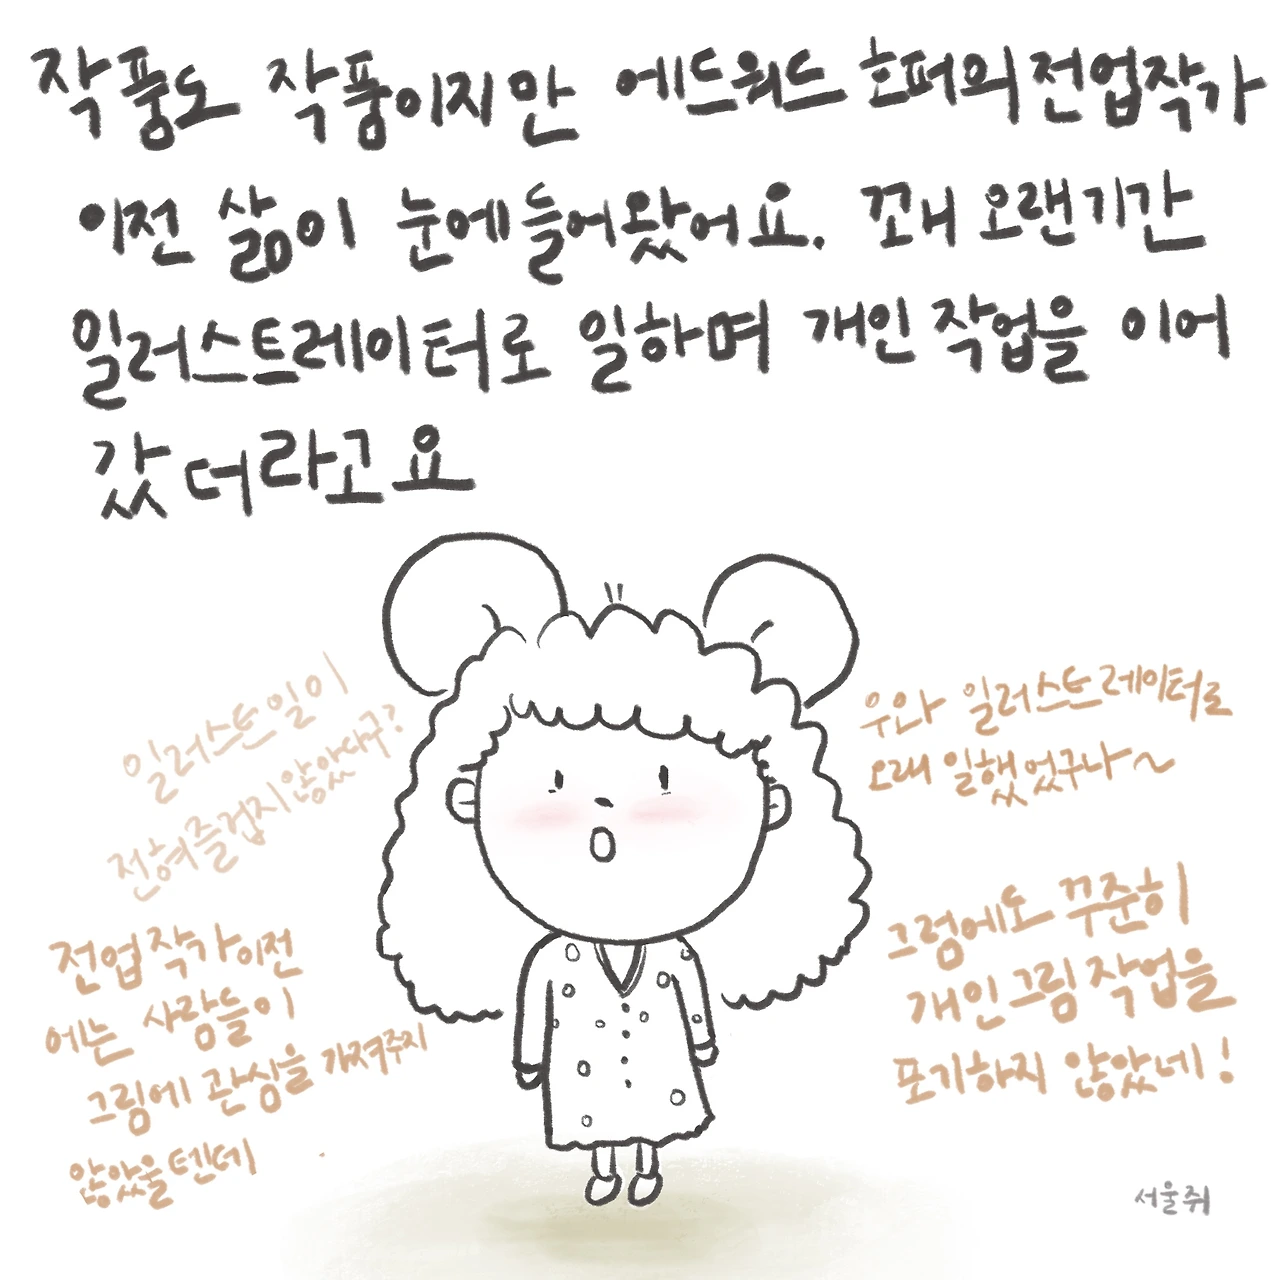 작풍도 작풍이지만 에드워드 호퍼의 전업작가
이전 삶이 눈에 들어왔어요. 꼬내 오랜기간
일러스트레이터로 일하며 개인 작업을 이어
갔더라고요
일러스트 일이
전혀 즐겁지 않았다구?
우와 일러스트레이터로
오래 일했었구나~
전업 작가 이전
에는 사람들이
그림에 관심을 가져주지
않았을텐데
그럼에도 꾸준히
개인 그림 작업을
포기하지 않았네!
서울쥐